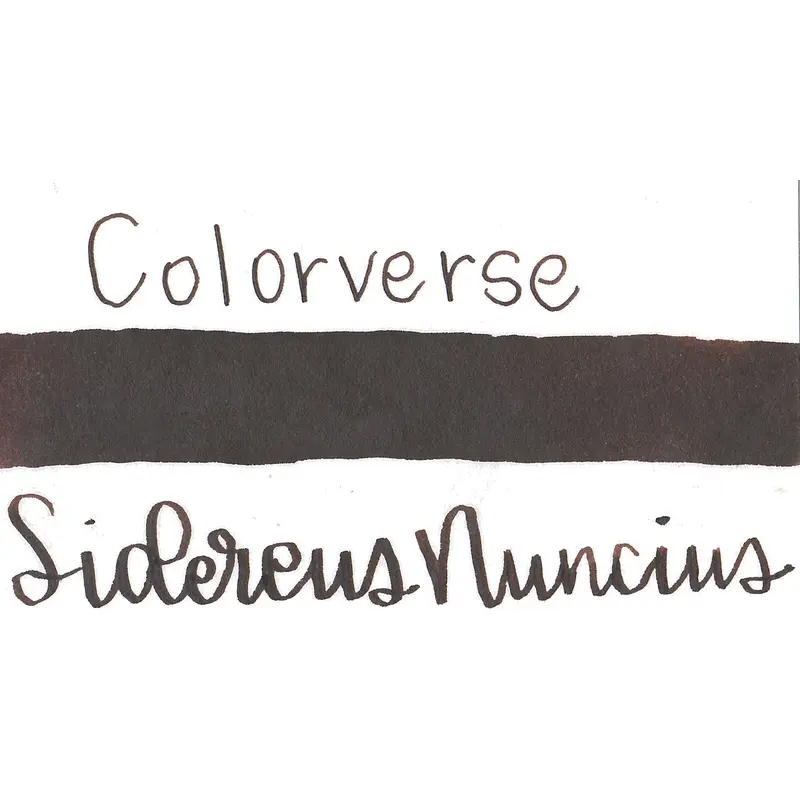 Colorverse
Sidereus Nuncius